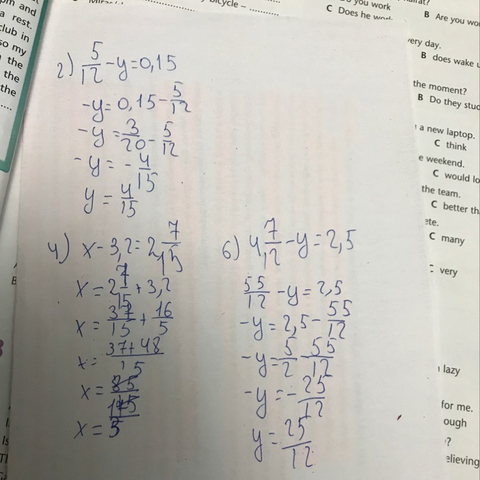 pm and
a rest.
club in
so my
the
the
the
C Does he work
B Are you wor
very day.
B does wake u
the moment?
B Do they stud
a new laptop.
C think
e weekend.
C would lo
the team.
C better th
ete.
C many
C very
lazy
for me.
ough
?
elieving
2) 5/12 - y = 0,15
-y = 0,15 - 5/12
-y = 3/20 - 5/12
-y = - 4/15
y = 4/15
4) x - 3,2 = 2 7/15
x = 2 7/15 + 3,2
x = 37/15 + 16/5
x = 37+48/15
x = 85/15
x = 5
6) 4 7/12 - y = 2,5
55/12 - y = 2,5
-y = 2,5 - 55/12
-y = 5/2 - 55/12
-y = - 25/12
y = 25/12